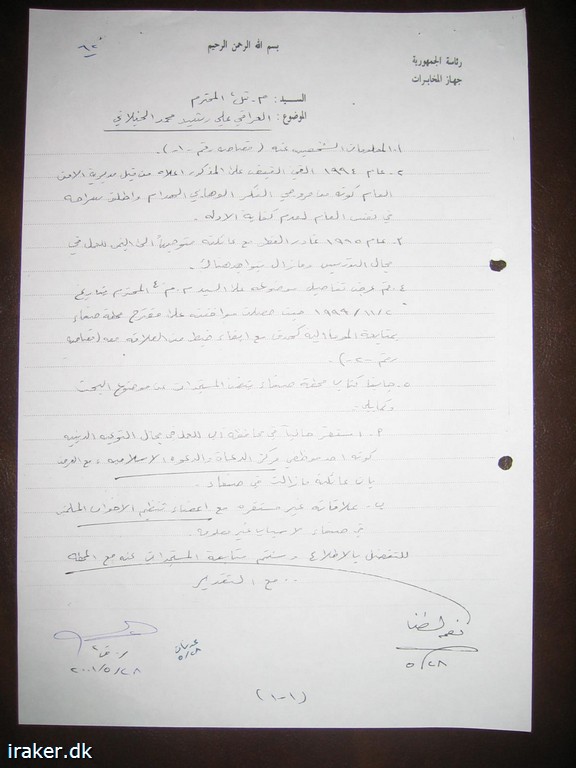 بسم الله الرحمن الرحيم
رئاسة الجمهورية
جهاز المخابرات
٦٢
السيد : م. المحترم
الموضوع : العراقي علي رشيد محمد الخيلاني
١. المعلومات الشخصية عنه ( قصاصة رقم -١- ) .
٢. عام ١٩٩٤ القي القبض على المذكور اعلاه من قبل مديرية الامن
العام كونه من مروجي الفكر الوهابي الهدام واطلق سراحه
في نفس العام لعدم كفاية الادلة .
٣. عام ١٩٩٥ غادر القطر مع عائلته متوجهاً الى اليمن للعمل في
مجال التدريس ومازال يتواجد هناك .
٤. تم عرض تفاصيل موضوعه على السيد م. م٤ المحترم بتاريخ
١٩٩٩/١١/٢ حيث حصلت موافقته على مقترح محطة صنعاء
بمتابعة الموما اليه كهدف مع ابقاء خيط من العلاقة معه ( قصاصة
رقم -٢- ) .
٥. جاءنا كتاب محطة صنعاء يتضمن المستجدات عن موضوع البحث
وكمايلي .
أ. استقر حالياً في محافظة اب للعمل في مجال التوعية الدينية
كونه احد موظفي مركز الدعاة والدعوة الاسلامية ، مع العرض
بان عائلته مازالت في صنعاء .
ب. علاقاته غير مستقره مع اعضاء تنظيم الاخوان المسلمين
في صنعاء لاسباب غير معلومة .
للتفضل بالاطلاع وسنتم متابعة المستجدات عنه مع المحطة
.. مع التقدير
٥/٢٨
٥/٢٨
٢٠٠١/٥/٢٨
(١-١)
iraker.dk